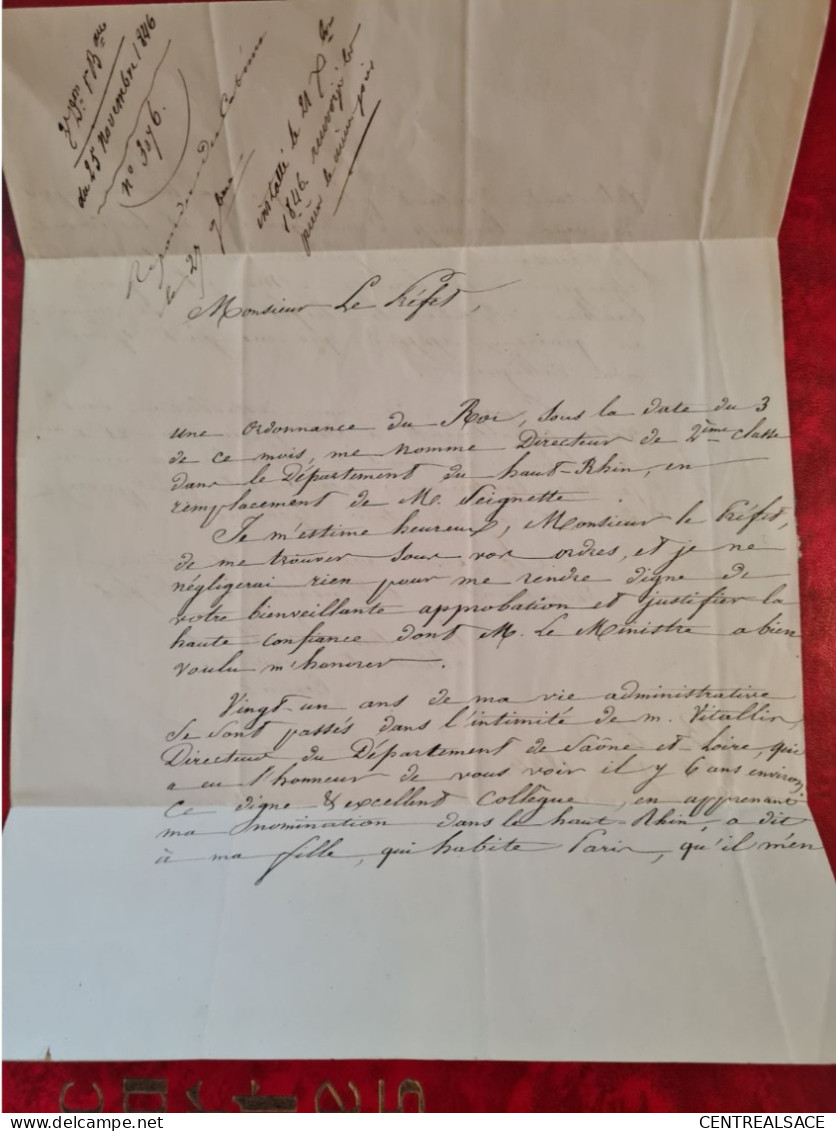 Don 1er Bau
du 25 novembre 1846
n° 3076.
Répondu du Cabinet
le 27 9bre
installé le 21 Xbre
1846. renvoyé les
pièces le même jour
Monsieur Le Préfet,
une ordonnance du Roi, sous la date du 3
de ce mois, me nomme Directeur de 2ème classe
dans le Département du haut-Rhin, en
remplacement de M. Seignette.
Je m'estime heureux, Monsieur le Préfet,
de me trouver sous vos ordres, et je ne
négligerai rien pour me rendre digne de
votre bienveillante approbation et justifier la
haute confiance dont M. Le Ministre a bien
voulu m'honorer.
Vingt un ans de ma vie administrative
se sont passés dans l'intimité de m. Vitallis,
Directeur du Département de Saône et Loire, qui
a eu l'honneur de vous voir il y 6 ans environ
Ce digne & excellent Collègue, en apprenant
ma nomination dans le haut-Rhin, a dit
à ma fille, qui habite Paris, qu'il m'en
CENTREALSACE